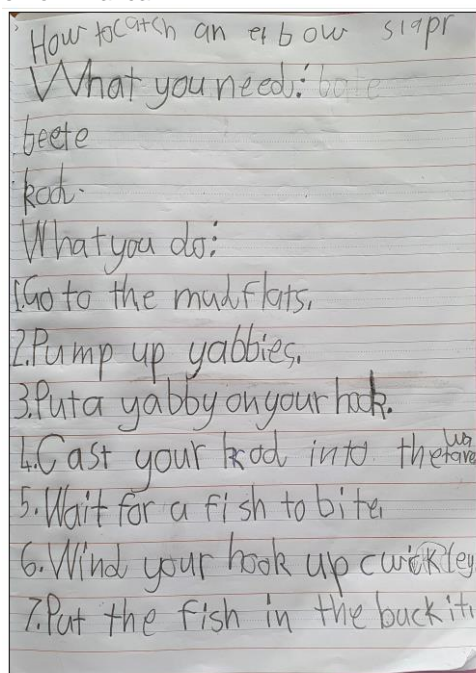 How to catch an el bow slapr
What you need: bate
beete
rod.
What you do:
1. Go to the mudflats.
2. Pump up yabbies.
3. Put a yabby on your hook.
4. Cast your rod into the watare
5. Wait for a fish to bite.
6. Wind your hook up cwickley
7. Put the fish in the buckit.